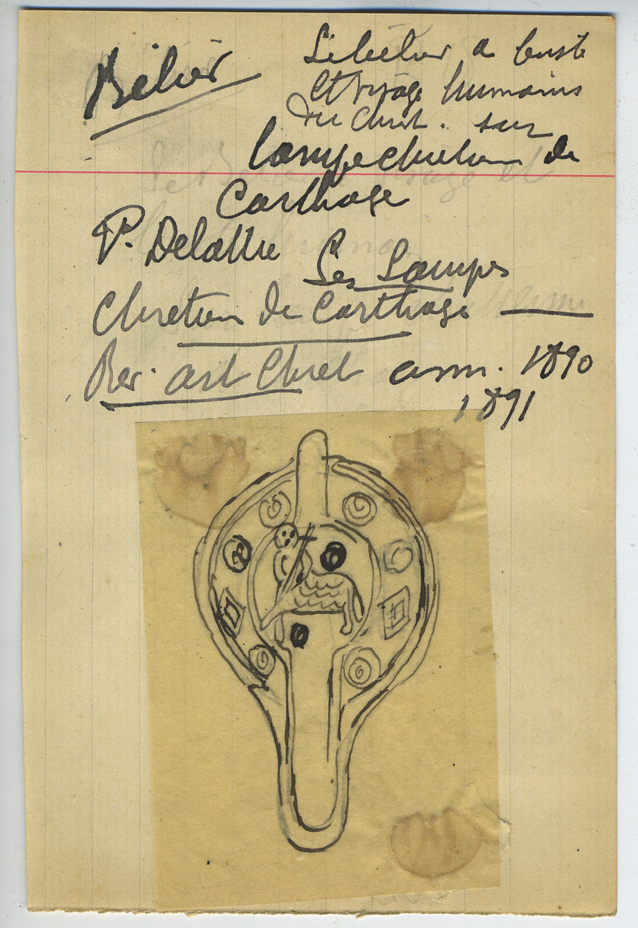 Bélier
Le bélier a buste
et visage humains
du Christ. sur
lampe chretien de
Carthage
P. Delattre Les Lampes
Chretien de Carthage
Rev. art Chret ann. 1890
1891